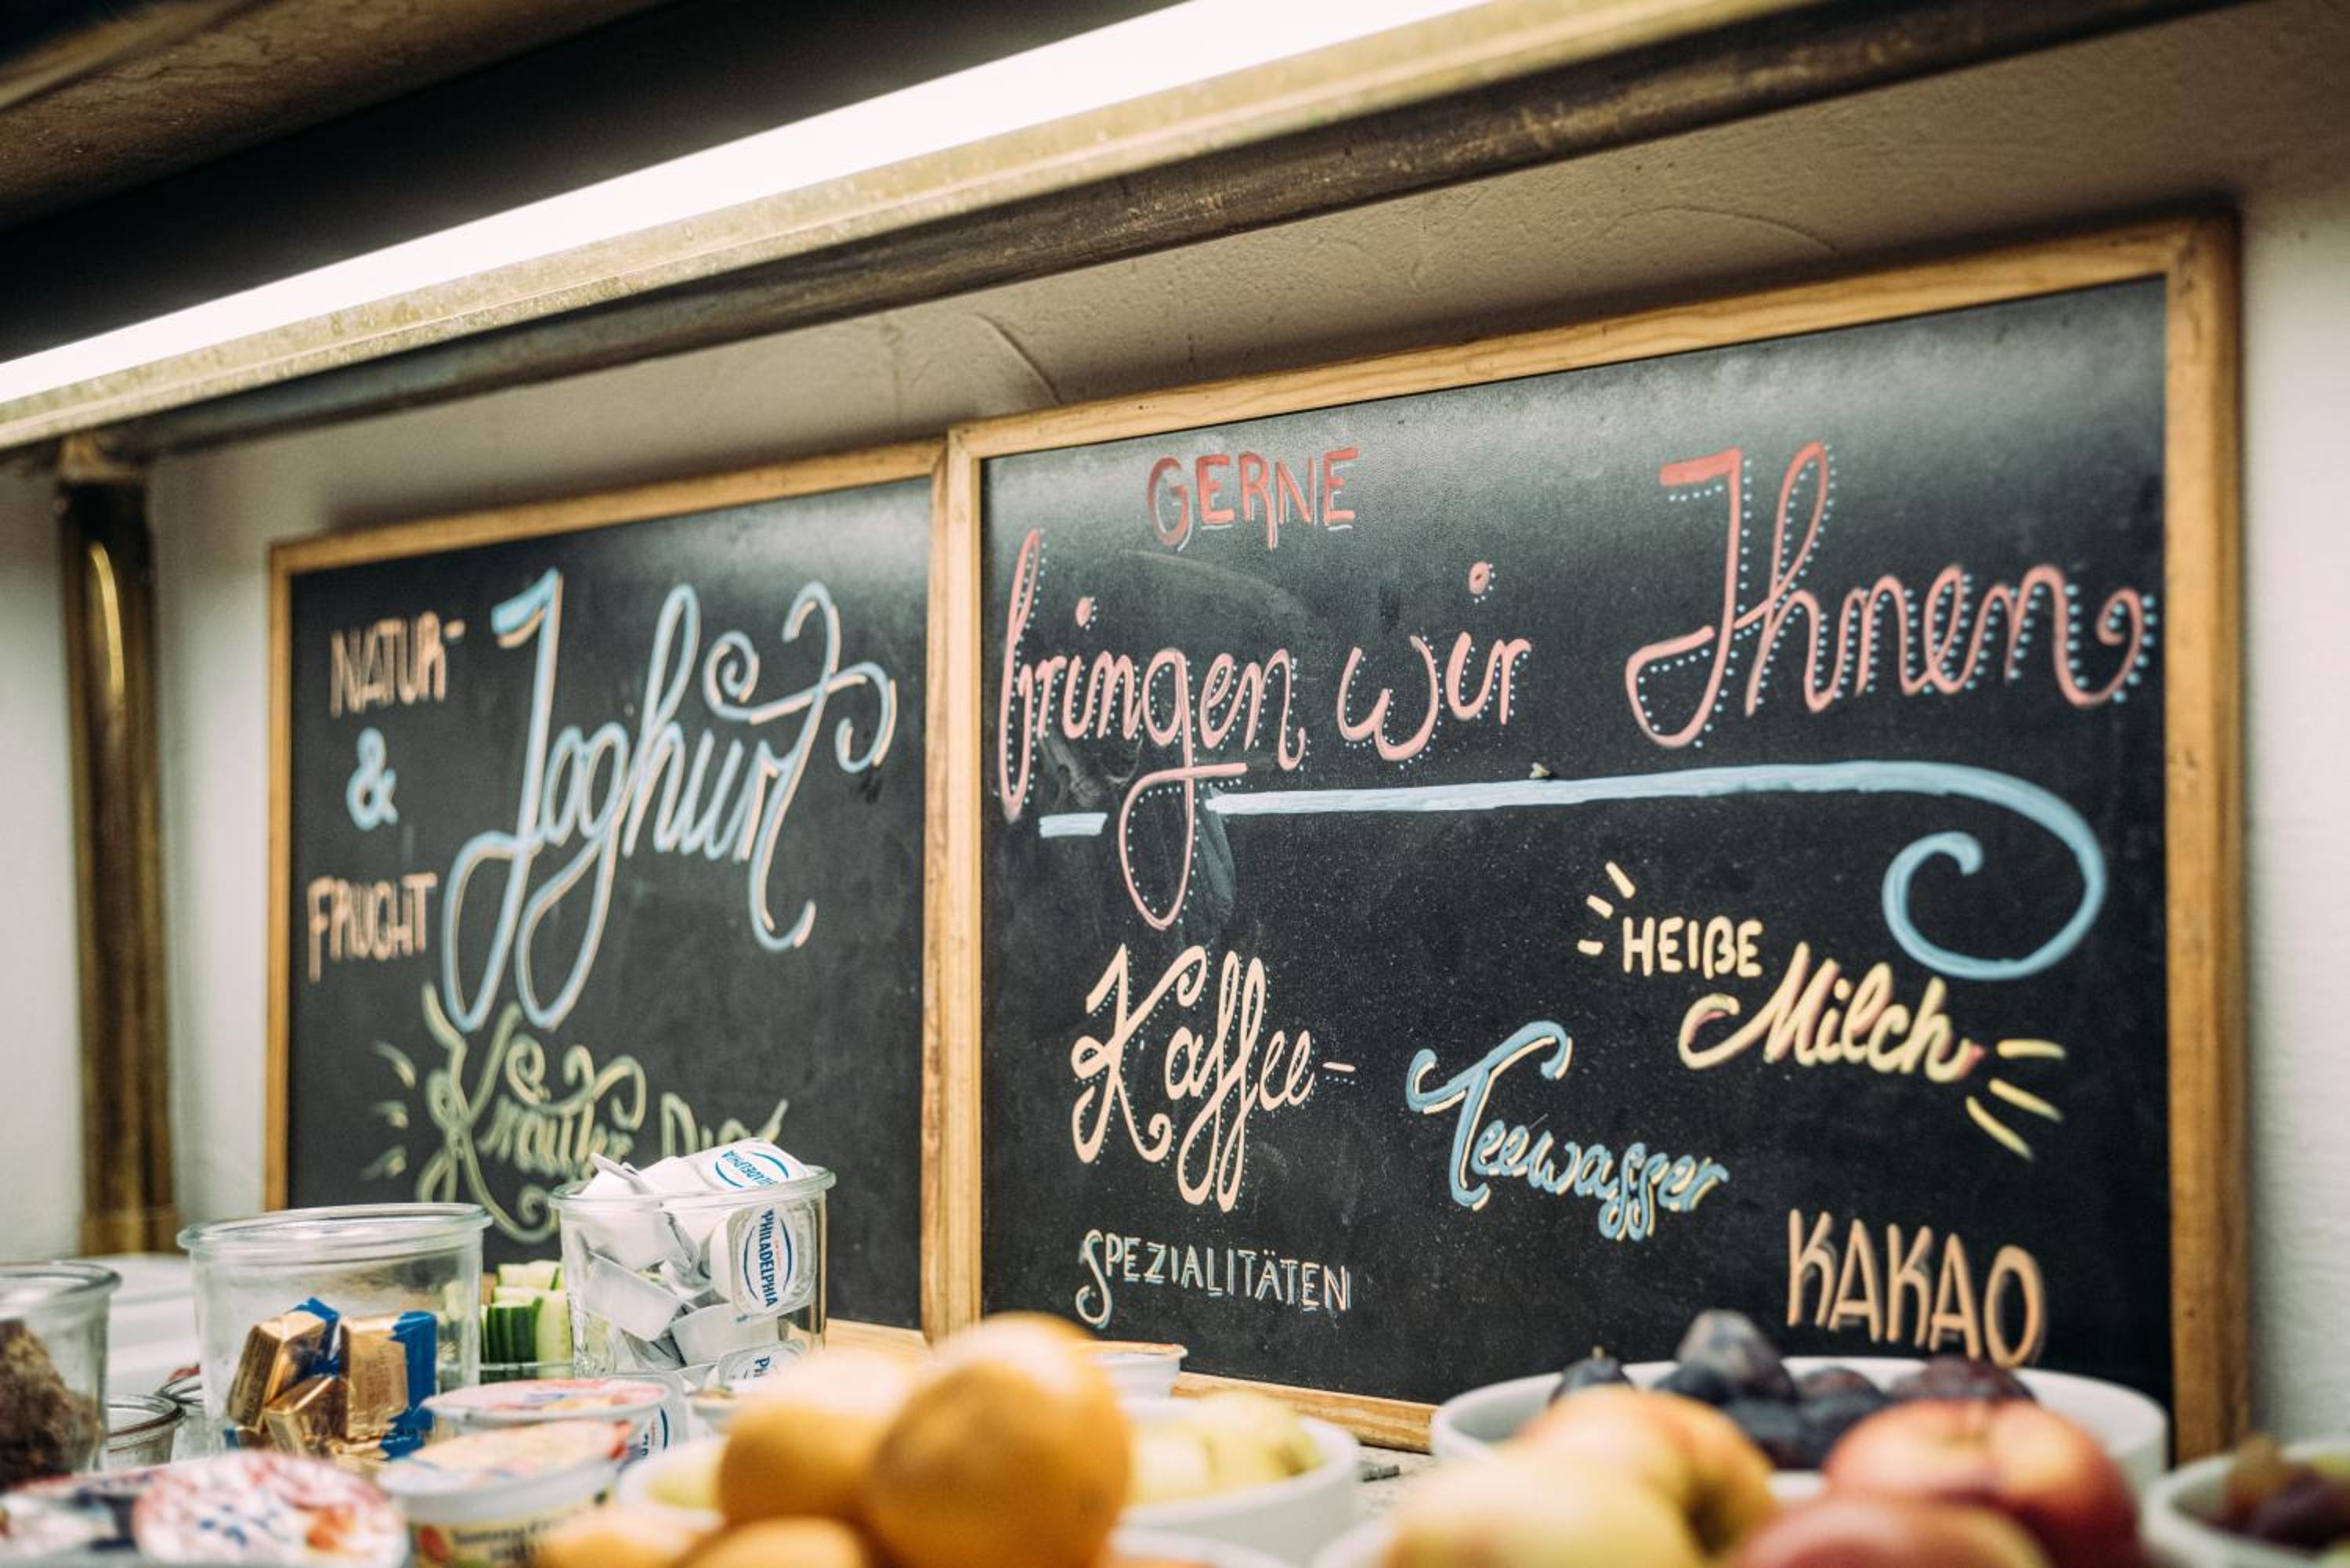 NATUR-
&
FRUCHT
Joghurt
Kräuter
GERNE
bringen wir Ihnen
Kaffee-
SPEZIALITÄTEN
Teewasser
HEIßE
Milch
KAKAO
PHILADELPHIA
PHILADELPHIA